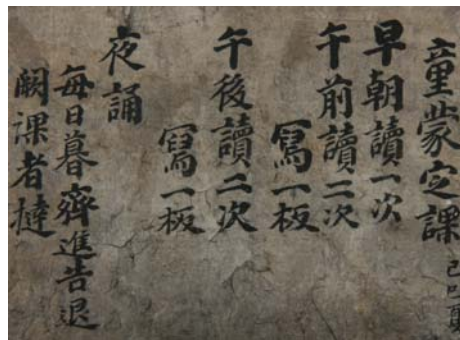 童蒙定課
己巳夏
早朝讀一次
午前讀二次
寫一板
午後讀二次
寫一板
夜誦
每日暮齊進告退
闕課者撻